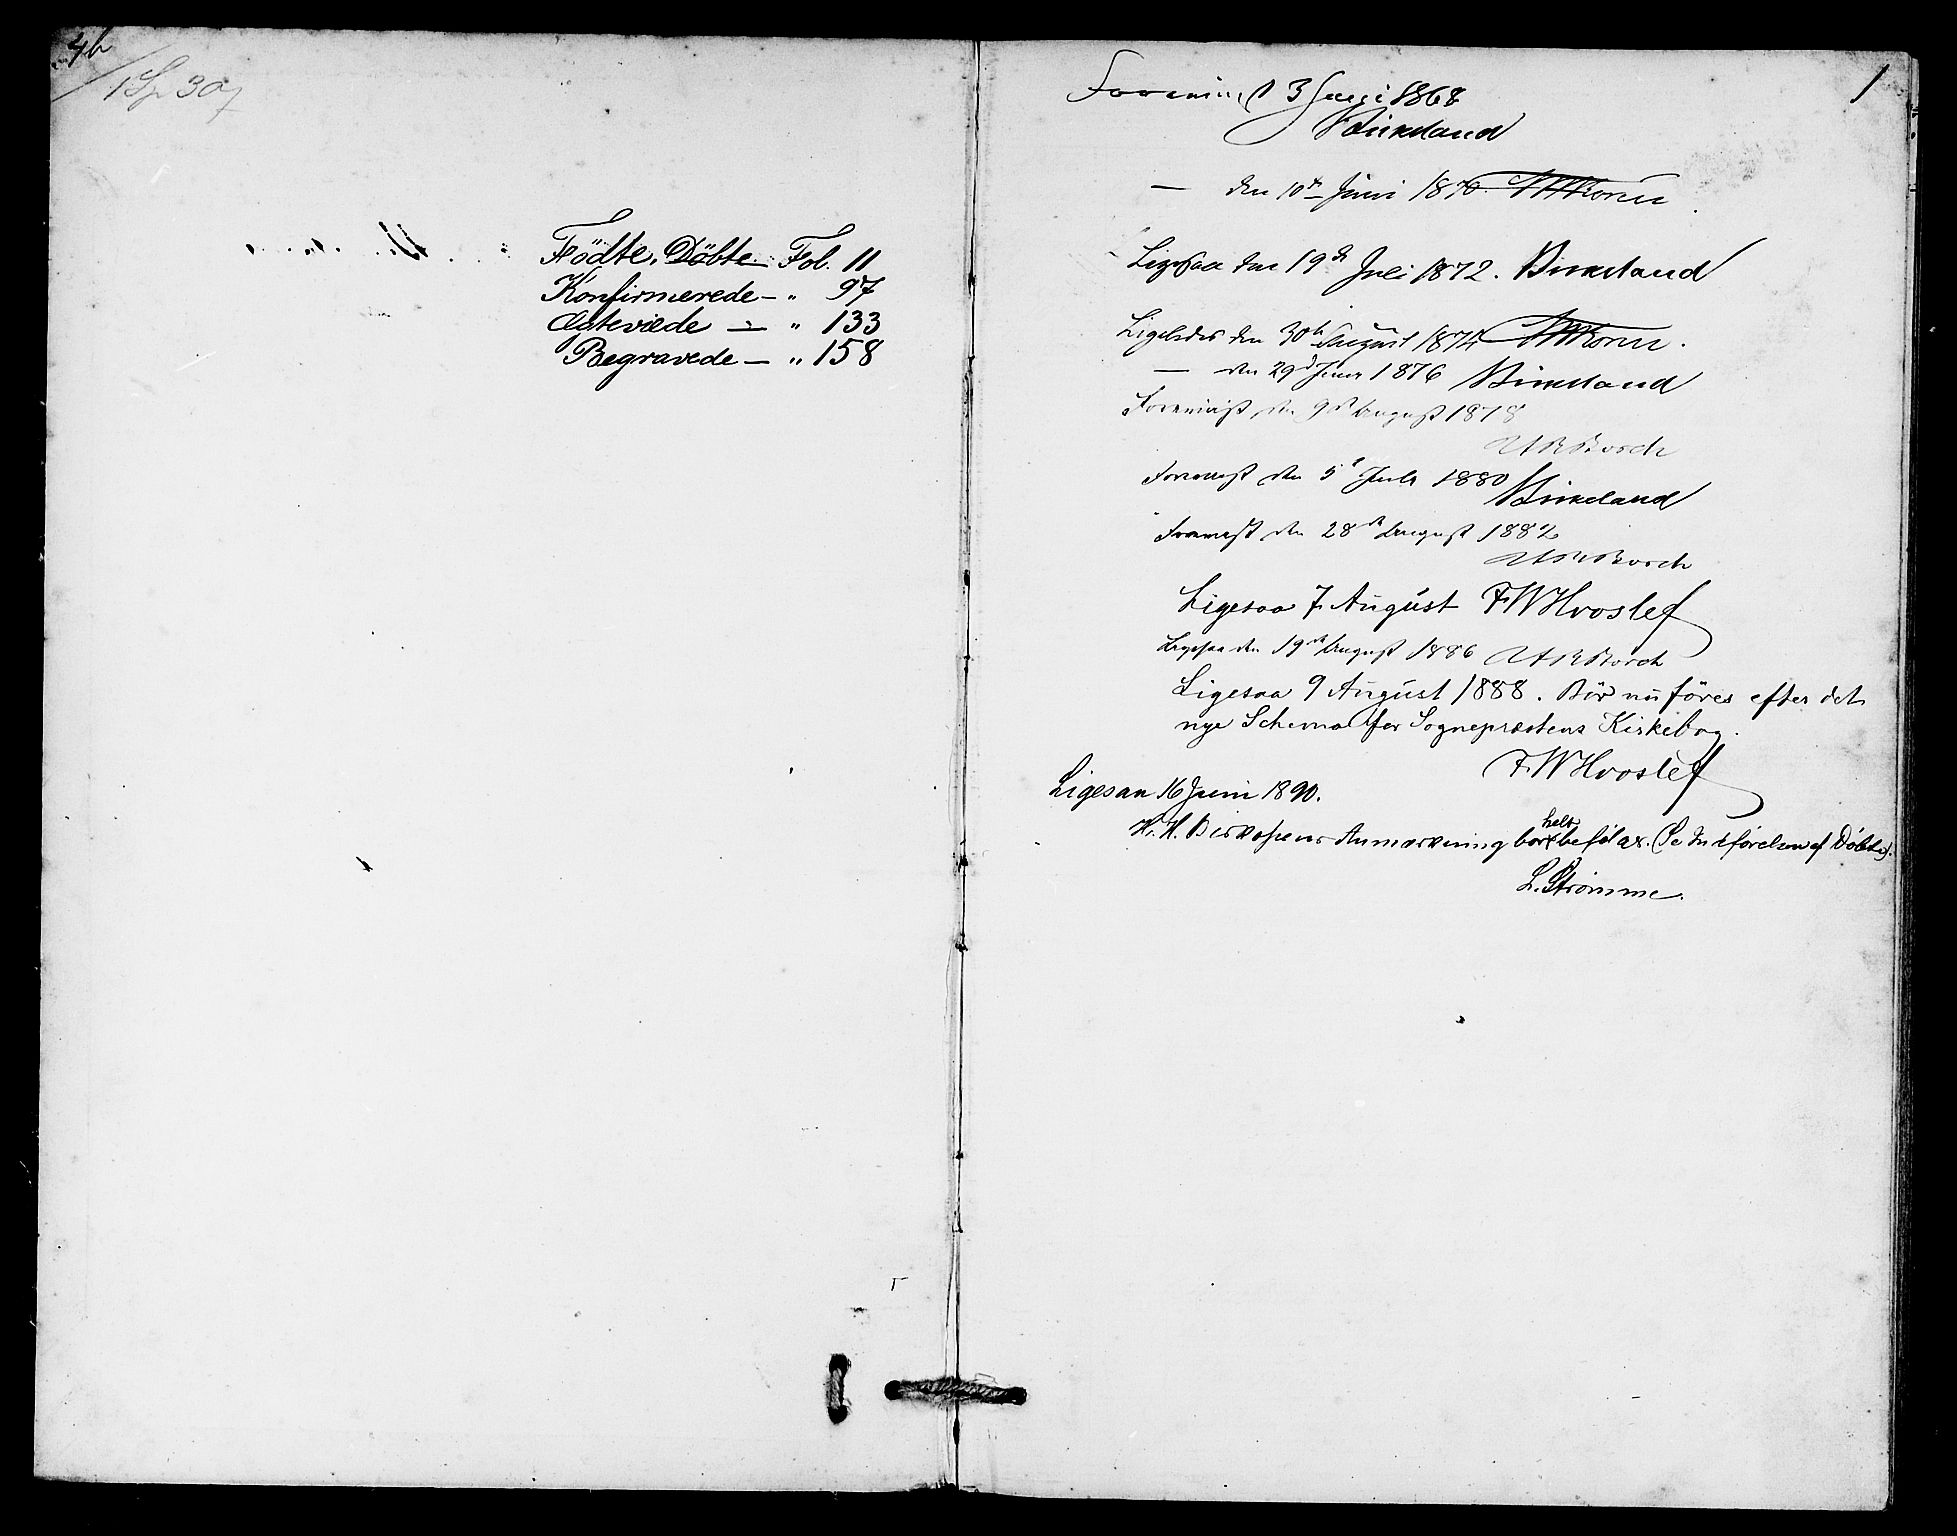 4b
1 Sp 307
Födte, Döbte Fol. 11
Konfirmerede — „ 97
Ægteviede — „ 133
Begravede — „ 158
1
Forevist 3 Juni 1868
Birkeland
— den 10de Juni 1870
Ligesaa den 19de Juli 1872. Birkeland
Ligeledes den 30te August 1874
— den 29d Juni 1876 Birkeland
Forevist, den 9de August 1878
Borch
Forevist den 5te Juli 1880
Birkeland
Forevist den 28de August 1882
Borch
Ligesaa 7 August FWHvoslef
Ligesaa den 19de August 1886 Borch
Ligesaa 9 August 1888. Bör nu föres efter det
nye Schema for Sognepræstens Kirkebog.
FWHvoslef
Ligesaa 16 Juni 1890.
H. H. Biskopens Anmærkning bør helt beføl (Se Indførelsen af Döbte).
L. Strømme.